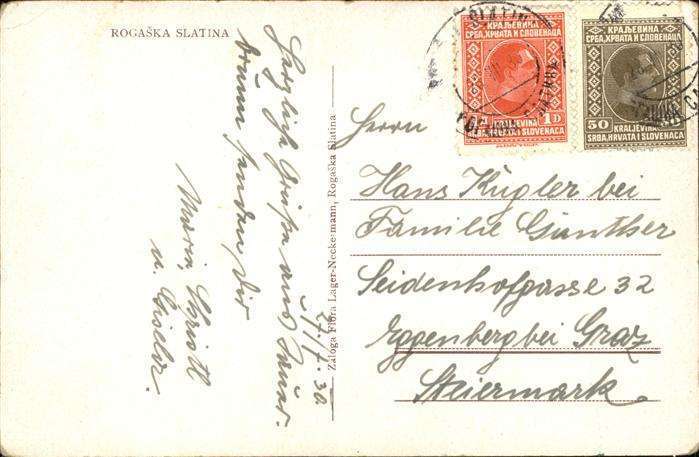 ROGAŠKA SLATINA
27./7. 30.
Herzliche Grüße aus Sauer-
brunn senden Dir
Maria, Christl
u. Gisela.
Založga Flora Lager-Neckermann, Rogaška Slatina
KRALJEVINA
СРБА, ХРВАТА И СЛОВЕНАЦА
1Д 1D
KRALJEVINA
SRBA, HRVATA I SLOVENACA
КРАЉЕВИНА
СРБА, ХРВАТА И СЛОВЕНАЦА
50
KRALJEVINA
SRBA, HRVATA I SLOVENACA
Herrn
Hans Kugler bei
Familie Günther
Seidenhofgasse 32
Eggenberg bei Graz
Steiermark